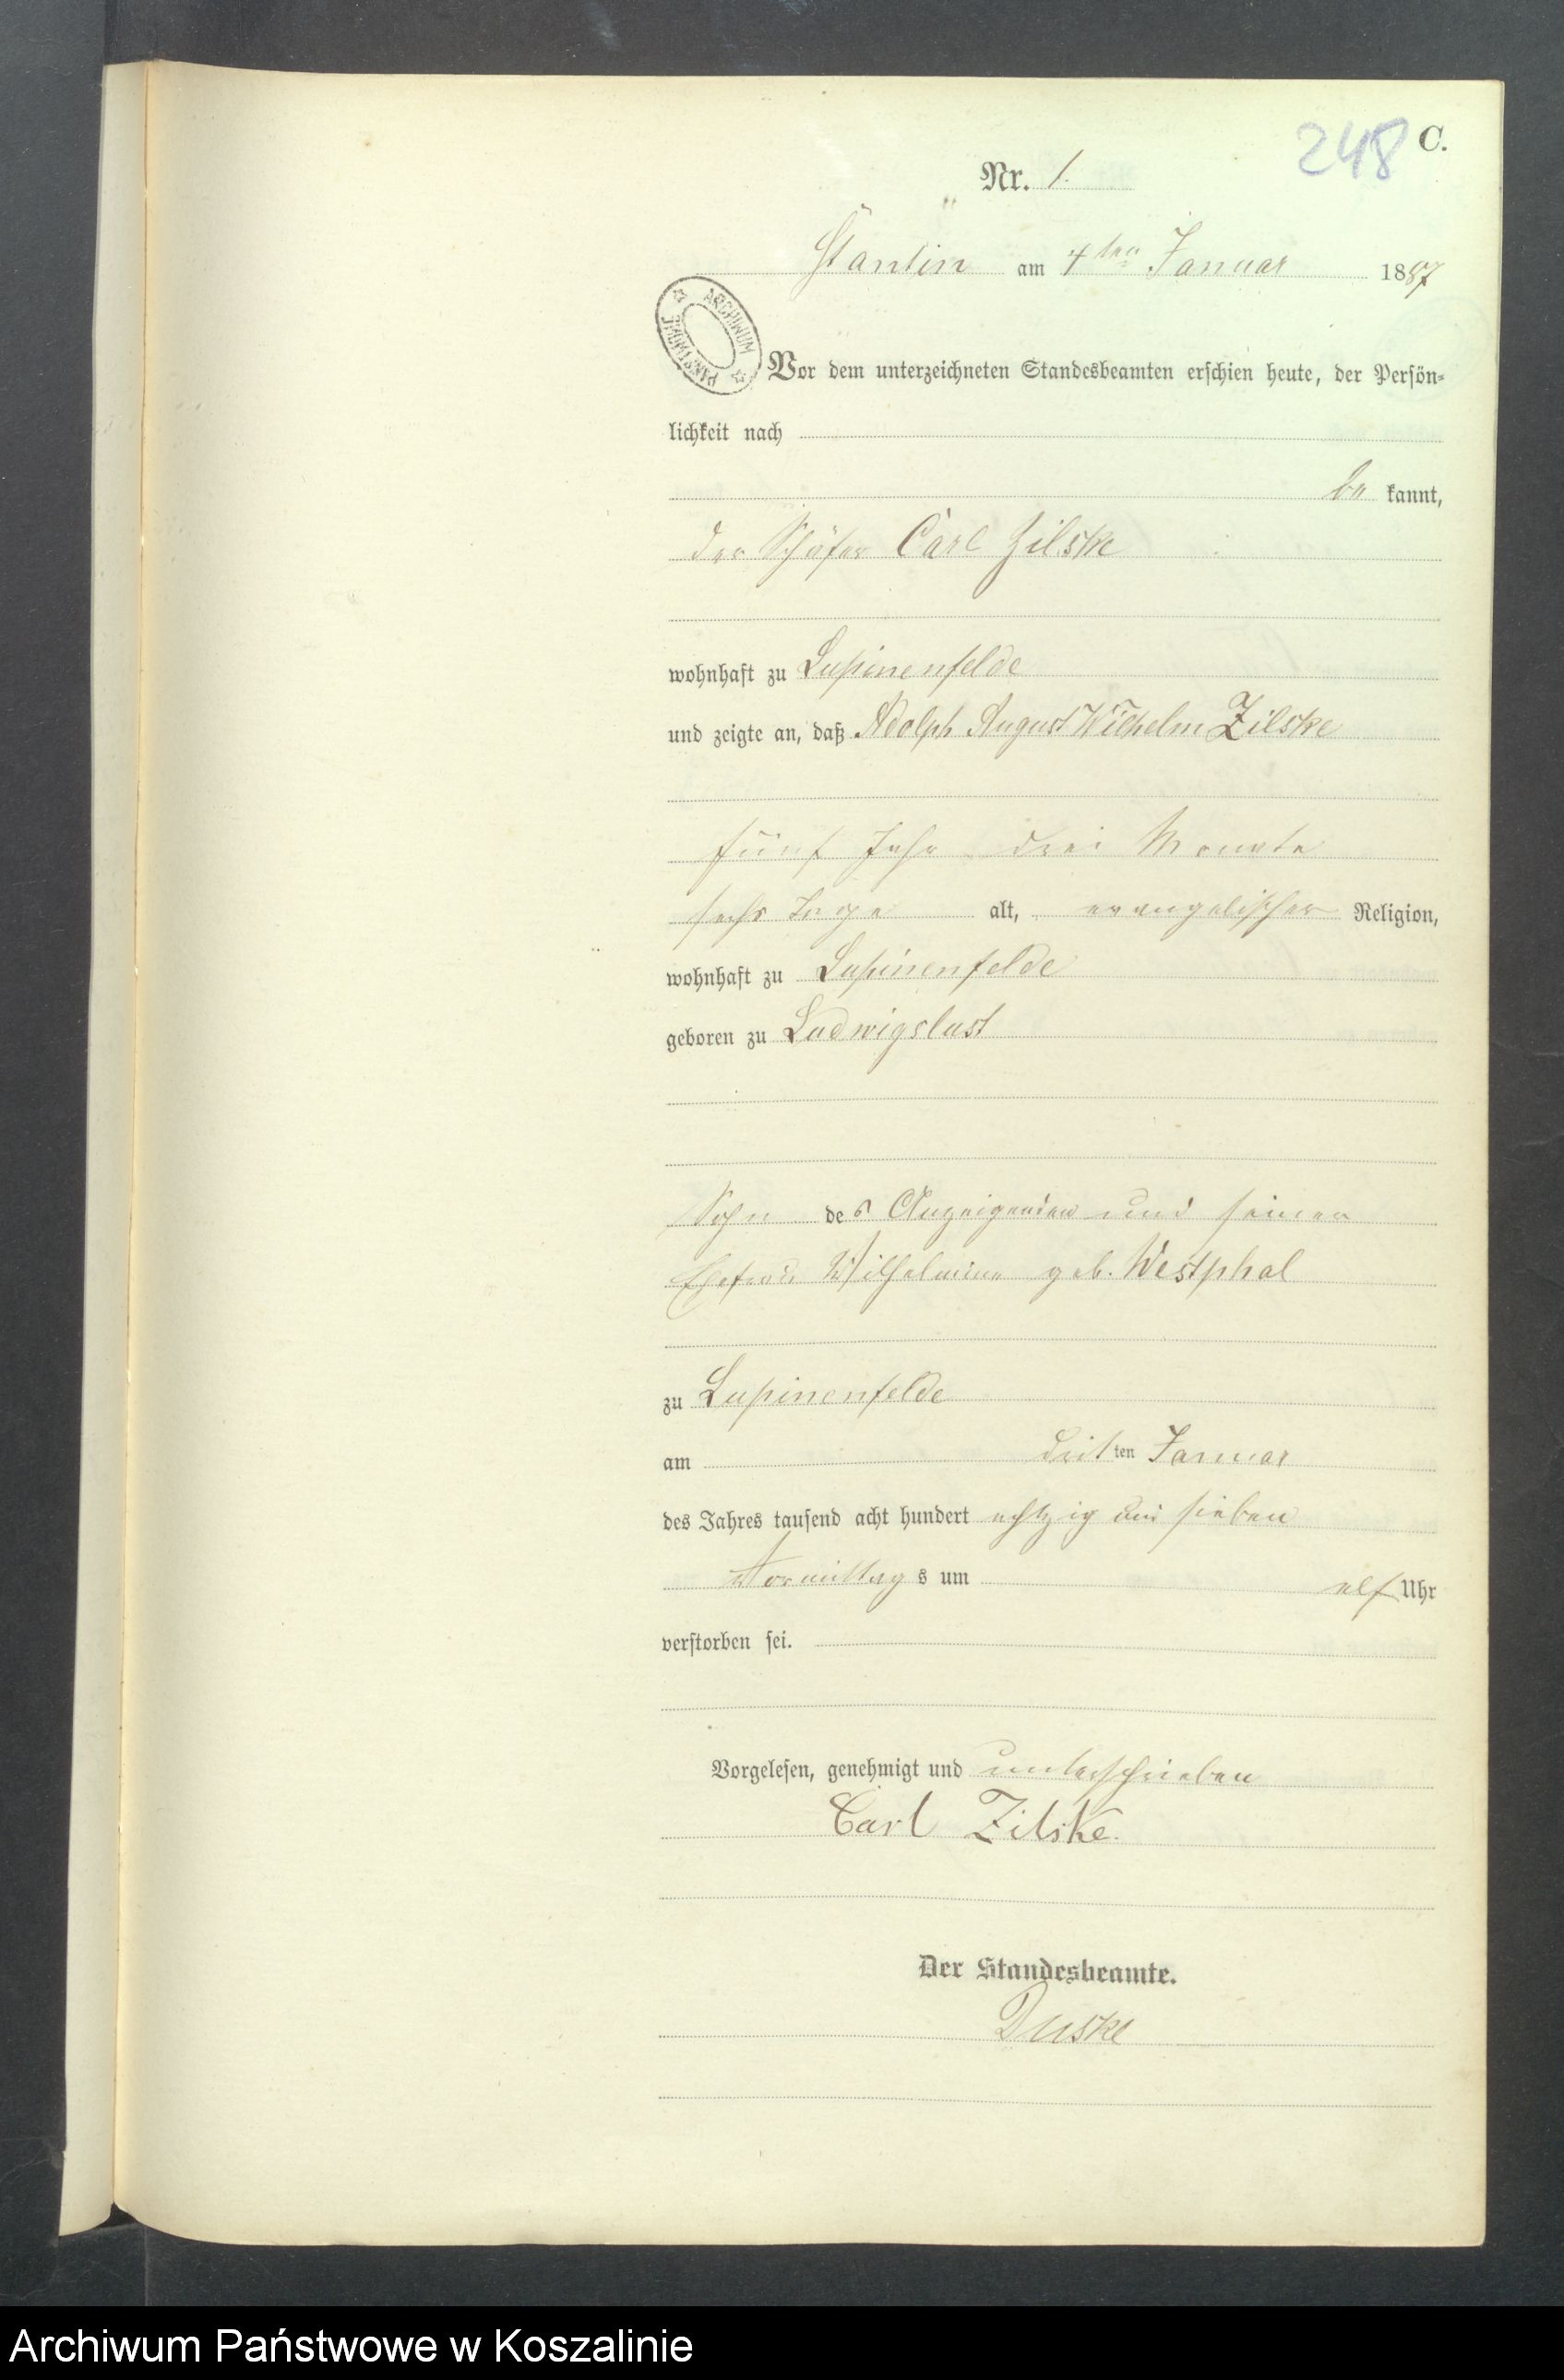 248 C.
Nr. 1.
Stantin am 4ten Januar 1887
ARCHIWUM PAŃSTWOWE
Vor dem unterzeichneten Standesbeamten erschien heute, der Persön-
lichkeit nach
be kannt,
der Schäfer Carl Zilske
wohnhaft zu Lupinenfelde
und zeigte an, daß Adolph August Wilhelm Zilske
fünf Jahr drei Monate
sechs Tage alt, evangelischer Religion,
wohnhaft zu Lupinenfelde
geboren zu Ludwigslust
Sohn des Anzeigenden und seiner
Ehefrau Wilhelmine geb. Westphal
zu Lupinenfelde
am dritten Januar
des Jahres tausend acht hundert achtzig und sieben
Vormittags um elf Uhr
verstorben sei.
Vorgelesen, genehmigt und unterschrieben
Carl Zilske.
Der Standesbeamte.
Duske
Archiwum Państwowe w Koszalinie